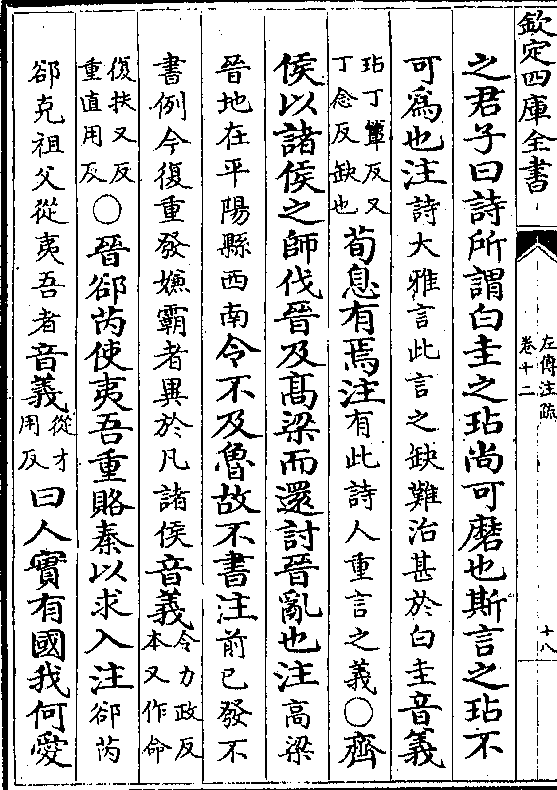 欽定四庫全書
左傳注疏
卷十二
十八
之君子曰詩所謂白圭之玷尚可磨也斯言之玷不
可為也注詩大雅言此言之缺難治甚於白圭音義
玷丁簟反又
丁念反缺也
荀息有焉注有此詩人重言之義○齊
侯以諸侯之師伐晉及髙梁而還討晉亂也注髙梁
晉地在平陽縣西南令不及魯故不書注前已發不
書例今復重發嫌霸者異於凡諸侯音義
令力政反
本又作命
復扶又反
重直用反
○晉郤芮使夷吾重賂秦以求入注郤芮
郤克祖父從夷吾者音義
從才
用反
曰人實有國我何愛